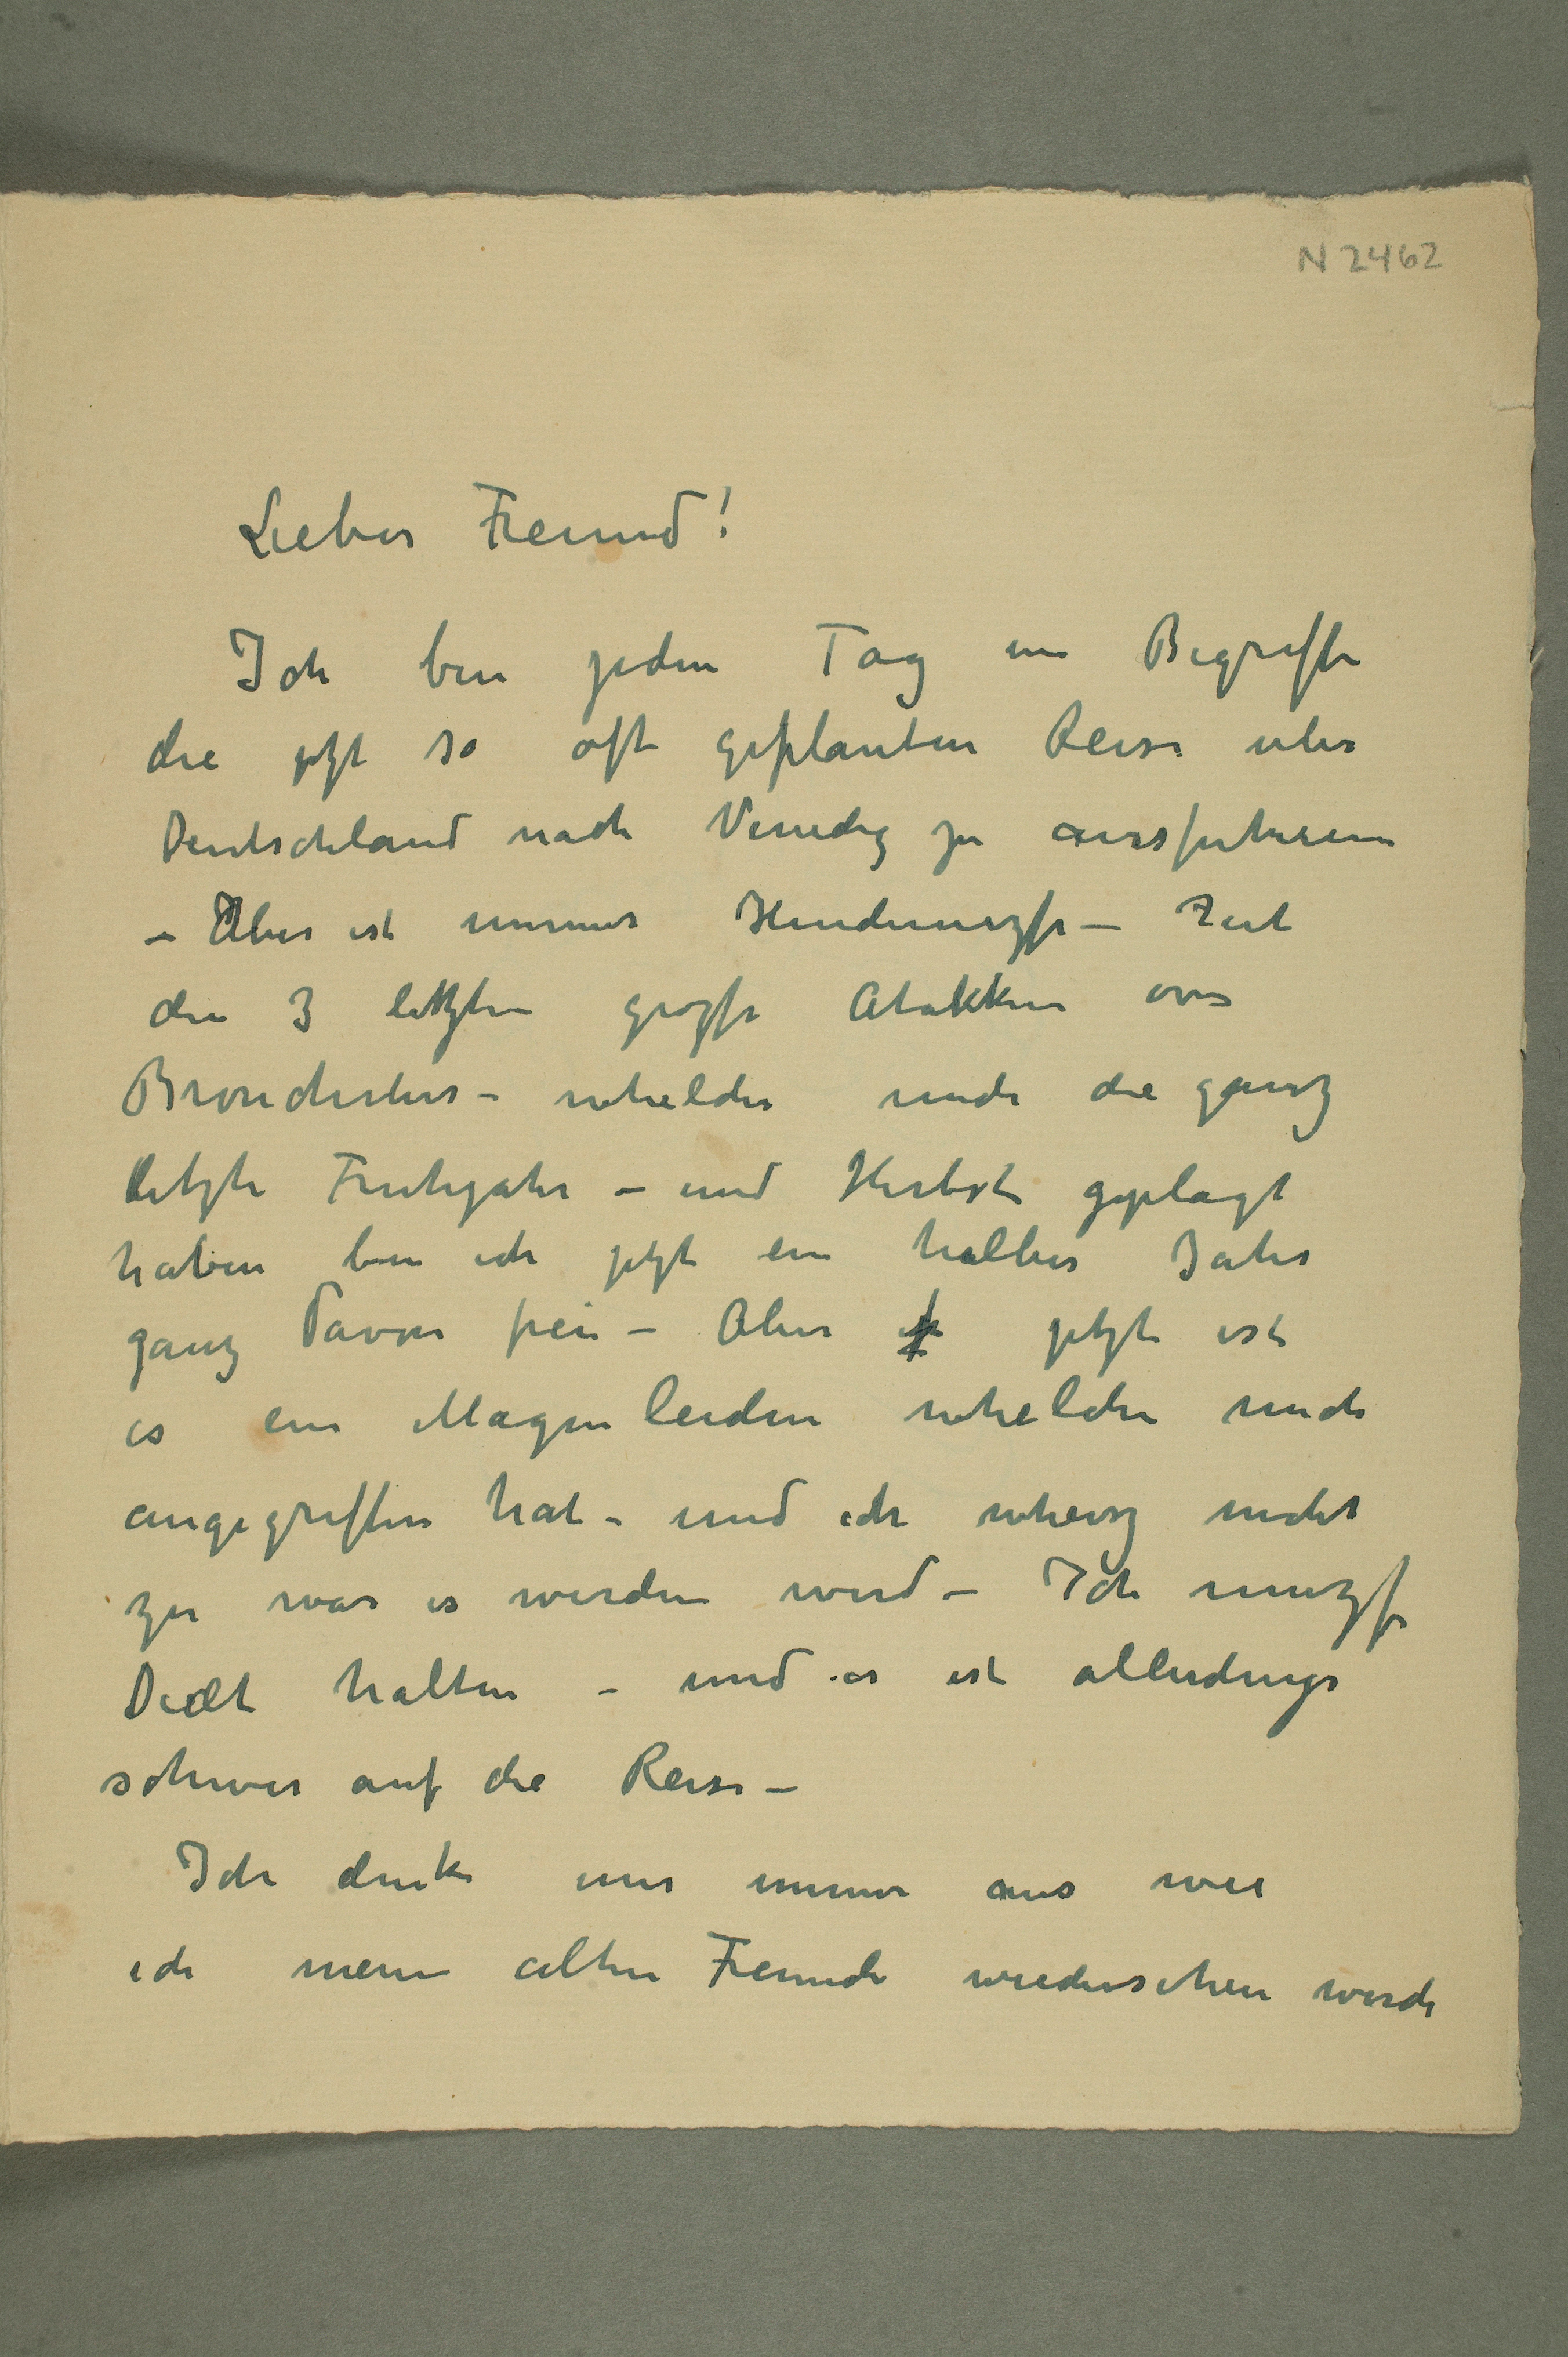 N 2462
Lieber Freund!
Ich bin jeden Tag im Begriffe
die jetzt so oft geplanten Reise uber
Deutschland nach Venedig zu ausfuhren
– Aber ist immer Hindernizse – Zeit
den 3 letzten grozse Atakken von
Bronchitus – whelche mich die ganz
letzte Fruhjahr – und Herbste geplagt
haben bin ich jetzt ein halbes Jahr
ganz davon frei – Aber jetzt ist
es ein Magenleiden whelche mich
angegriffen hat – und ich wheisz nicht
zu was es werden wird – Ich muzs
Diæt halten – und es ist allerdings
schwer auf die Reise –
Ich denke mir immer aus wie
ich meine alten Freunde wiedersehen werde